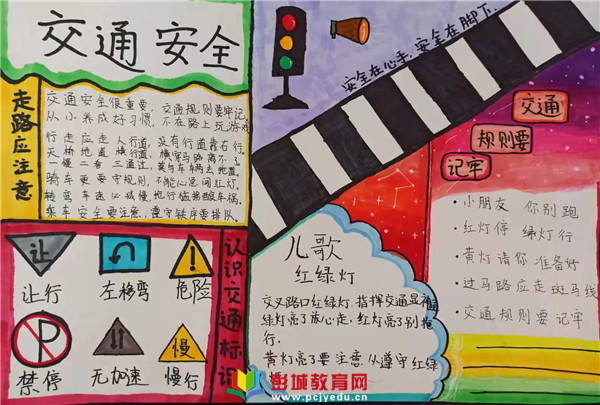 交通安全
走路应注意
交通安全很重要,交通规则要牢记
从小养成好习惯,不在路上玩游戏
行走应走人行道,没有行道靠右行。
天桥地道横行道,横穿马路离不了
一慢二看三通过,莫与车辆去抢道。
骑车更要守规则,不能心急闯红灯。
乘车安全要注意,遵守秩序要排队。
让
让行
左移弯
危险
禁停
无加速
慢
慢行
认识交通标识
安全在心手,安全在脚下.
儿歌
红绿灯
交叉路口红绿灯,指挥交通显神
绿灯亮了放心走,红灯亮了别抢
行。
黄灯亮了要注意,从遵守红绿
交通
规则要
记牢
·小朋友 你别跑
·红灯停 绿灯行
·黄灯请你准备好
·过马路应走斑马线
·交通规则要记牢
彭城教育网
www.pcjyedu.cn